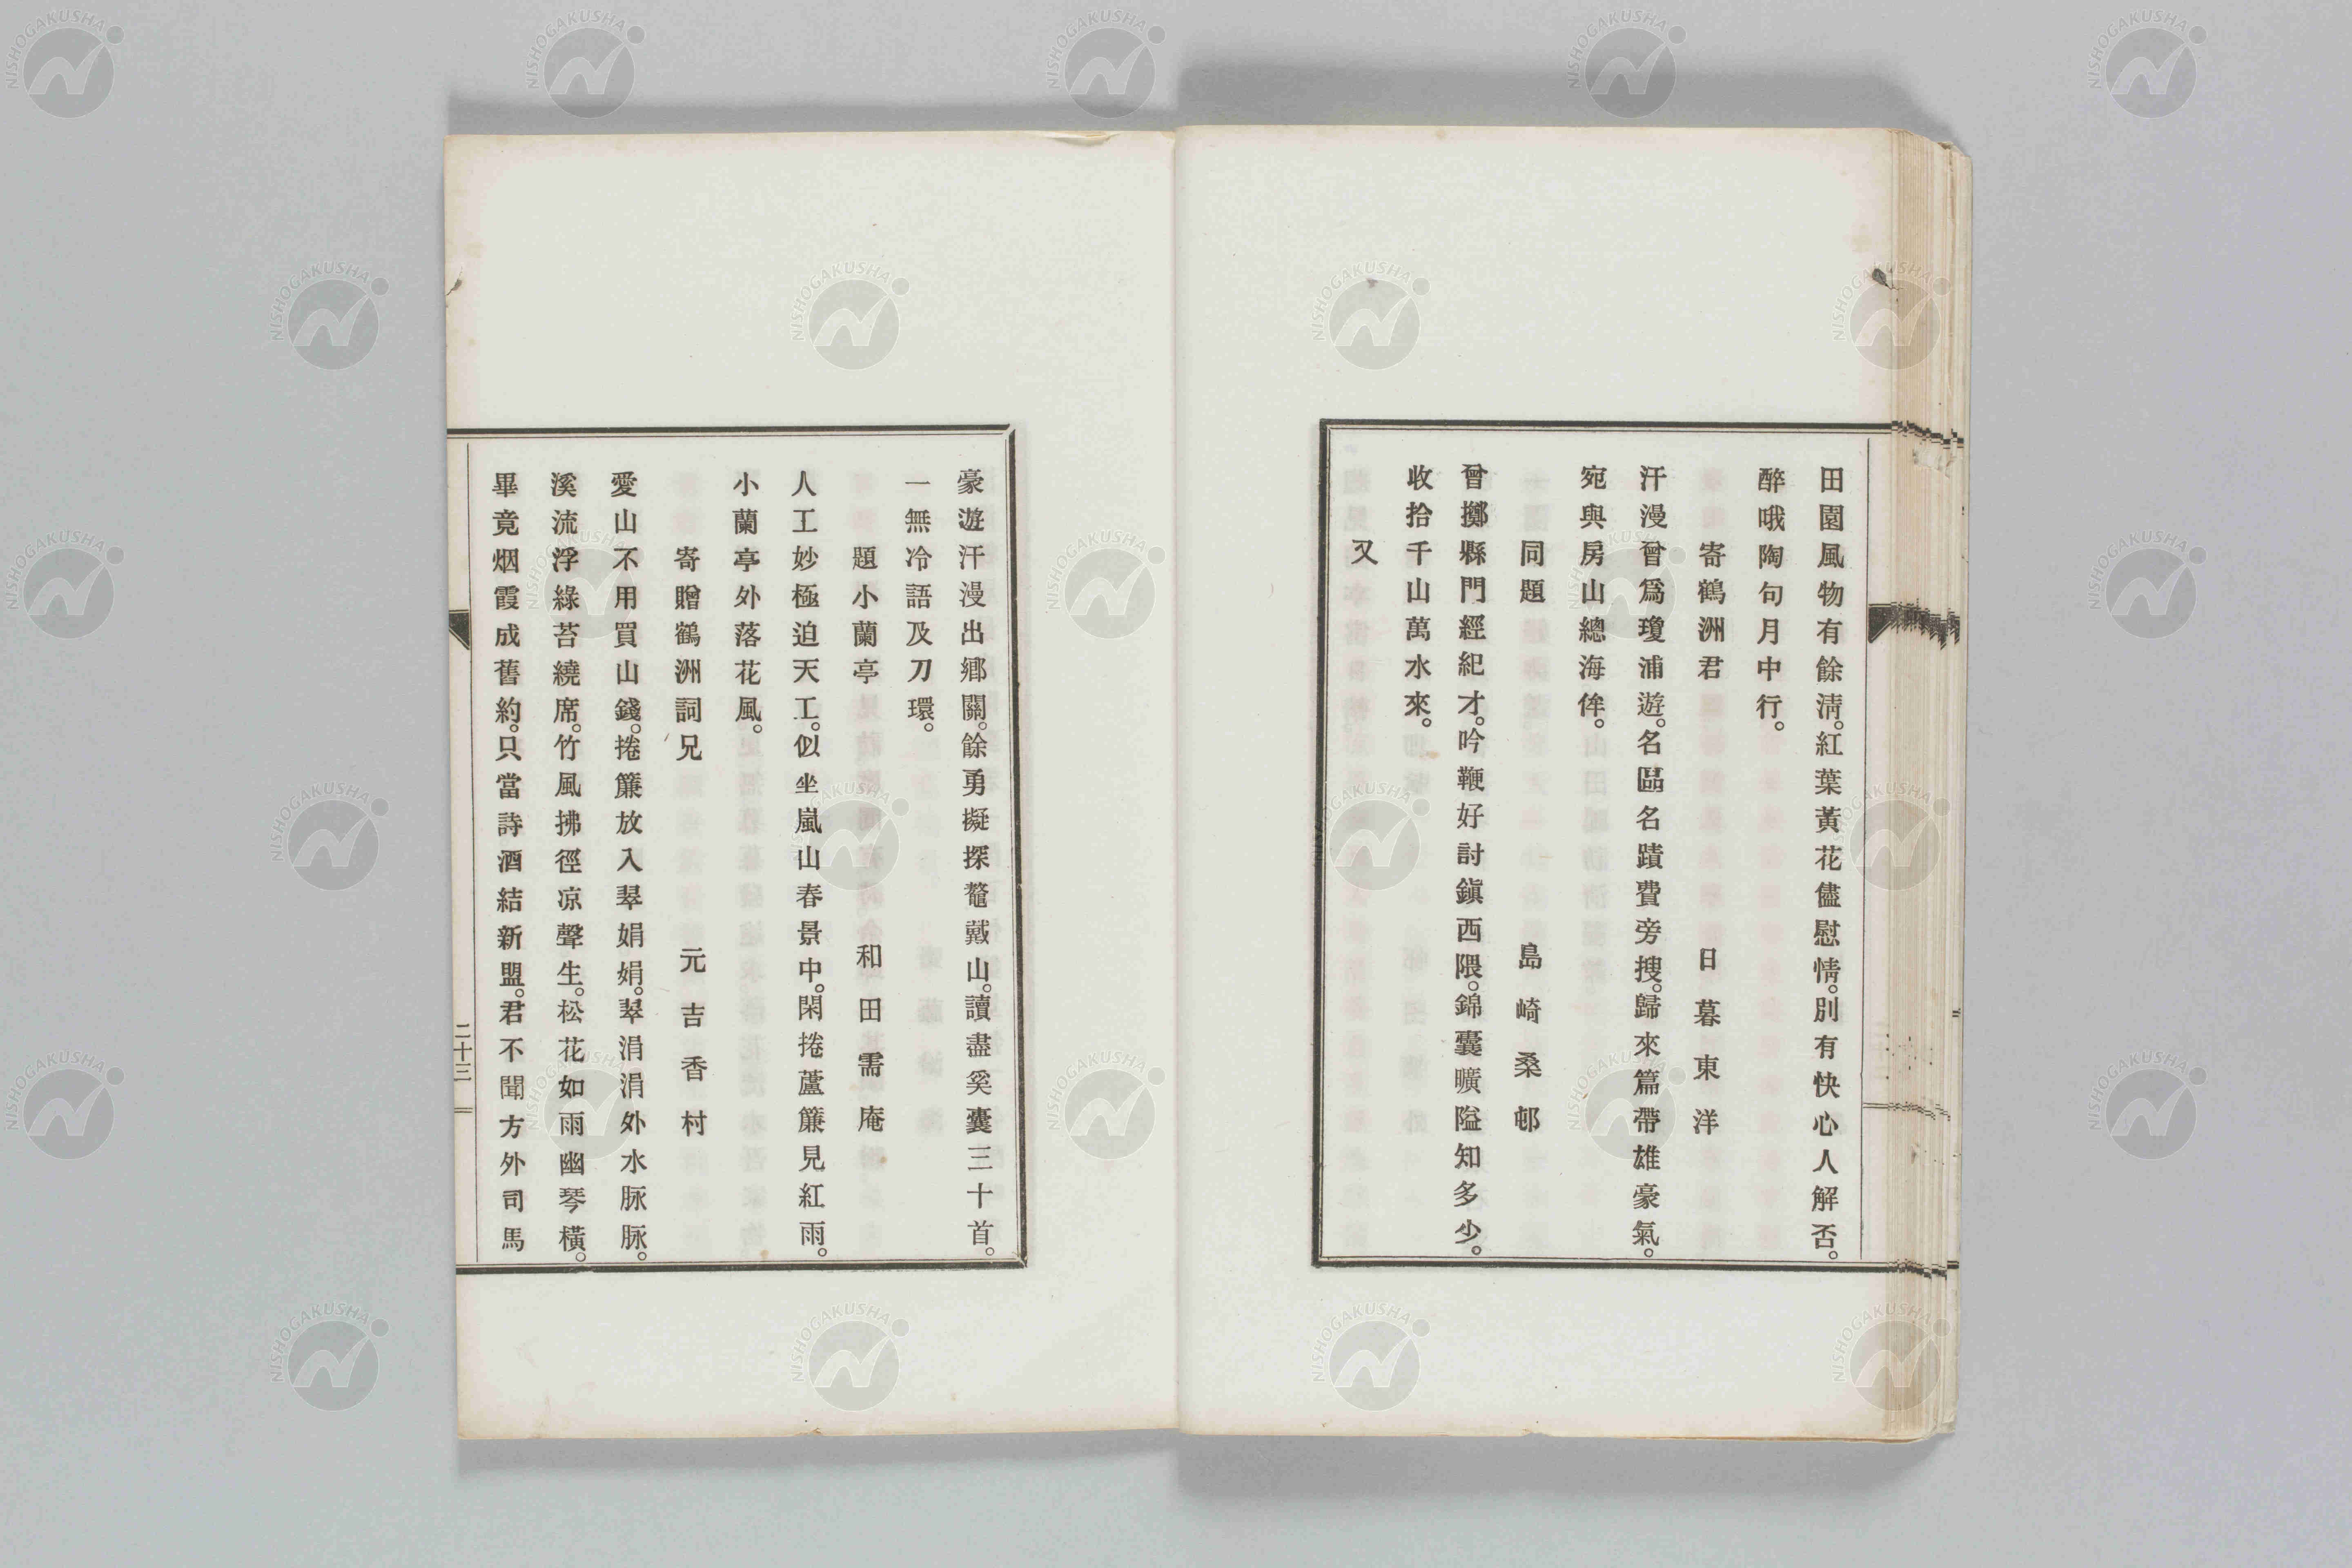 田園風物有餘淸。紅葉黃花儘慰情。別有快心人解否。
醉哦陶句月中行。
寄鶴洲君　日暮東洋
汗漫曾爲瓊浦遊。名區名蹟費旁搜。歸來篇帶雄豪氣。
宛與房山總海侔。
同題　島崎桑邨
曾擲縣門經紀才。吟鞭好討鎭西隈。錦囊曠隘知多少。
收拾千山萬水來。
又
豪遊汗漫出鄕關。餘勇擬探鼇戴山。讀盡奚囊三十首。
一無冷語及刀環。
題小蘭亭　和田需庵
人工妙極迫天工。似坐嵐山春景中。閑捲蘆簾見紅雨。
小蘭亭外落花風。
寄贈鶴洲詞兄　元吉香村
愛山不用買山錢。捲簾放入翠娟娟。翠涓涓外水脈脈。
溪流浮綠苔繞席。竹風拂徑凉聲生。松花如雨幽琴橫。
畢竟烟霞成舊約。只當詩酒結新盟。君不聞方外司馬
二十三
NISHOGAKUSHA